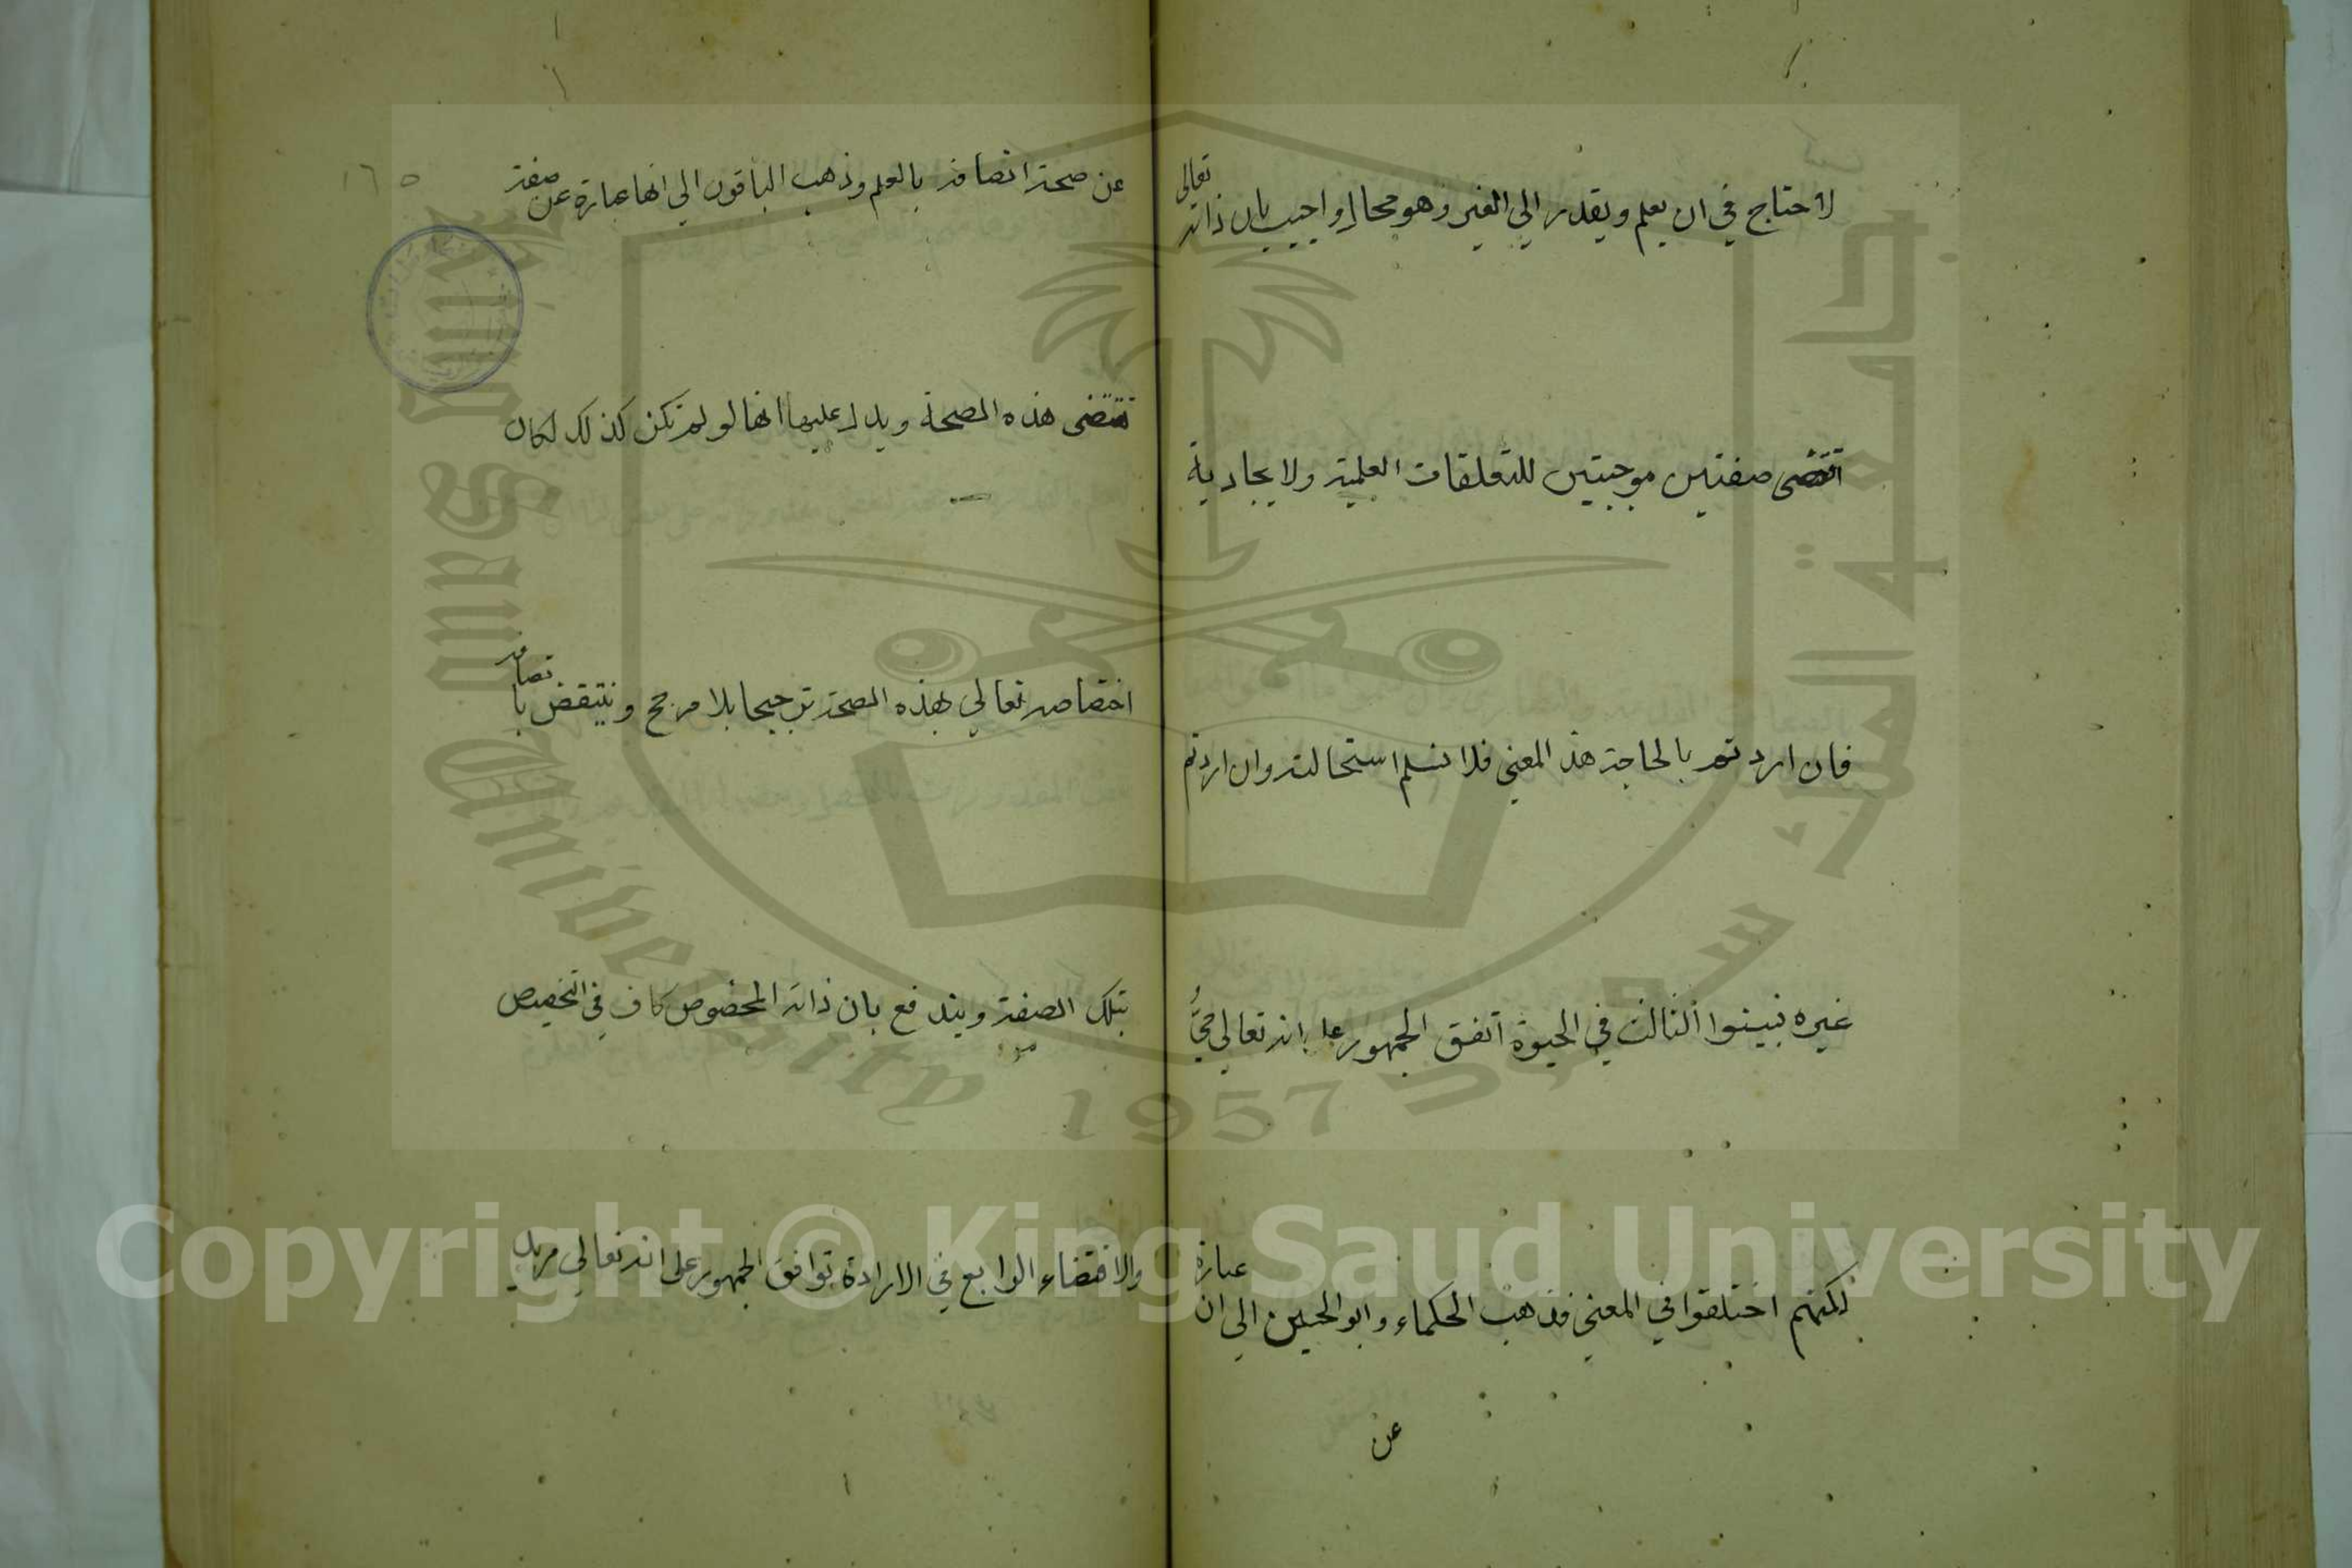 لاحتاج في ان يعلم ويقدر الي الغير وهو محال واجيب بان ذاته تعالي
اقتضى صفتين موجبتين للتعلقات العلمية ولايجادية
فان اردتم بالحاجة هذ المعني فلا نسلم استحالته وان اردتم
غيره فبينوا الثالث في الحيوة اتفق الجمهور على انه تعالي حيٌّ
لكنهم اختلقوا في المعني فذهب الحكماء وابو الحسين الي ان عبارة
عن
١٦٥
عن صحة اتصافه بالعلم وذهب الباقون الي انها عبارة عن صفة
تقتضى هذه الصحة ويدل عليها انها لو لم تكن كذلك لكان
اختصاصه تعالي بهذه الصحة ترجيحا بلا مرجح وينتقض باتصافه
بتلك الصفة ويندفع بان ذاته المخصوص كاف في التخصيص
والاقتضاء الرابع في الارادة توافق الجمهور على انه تعالي مريد
جامعة الملك سعود
King Saud University
1957
Copyright © King Saud University